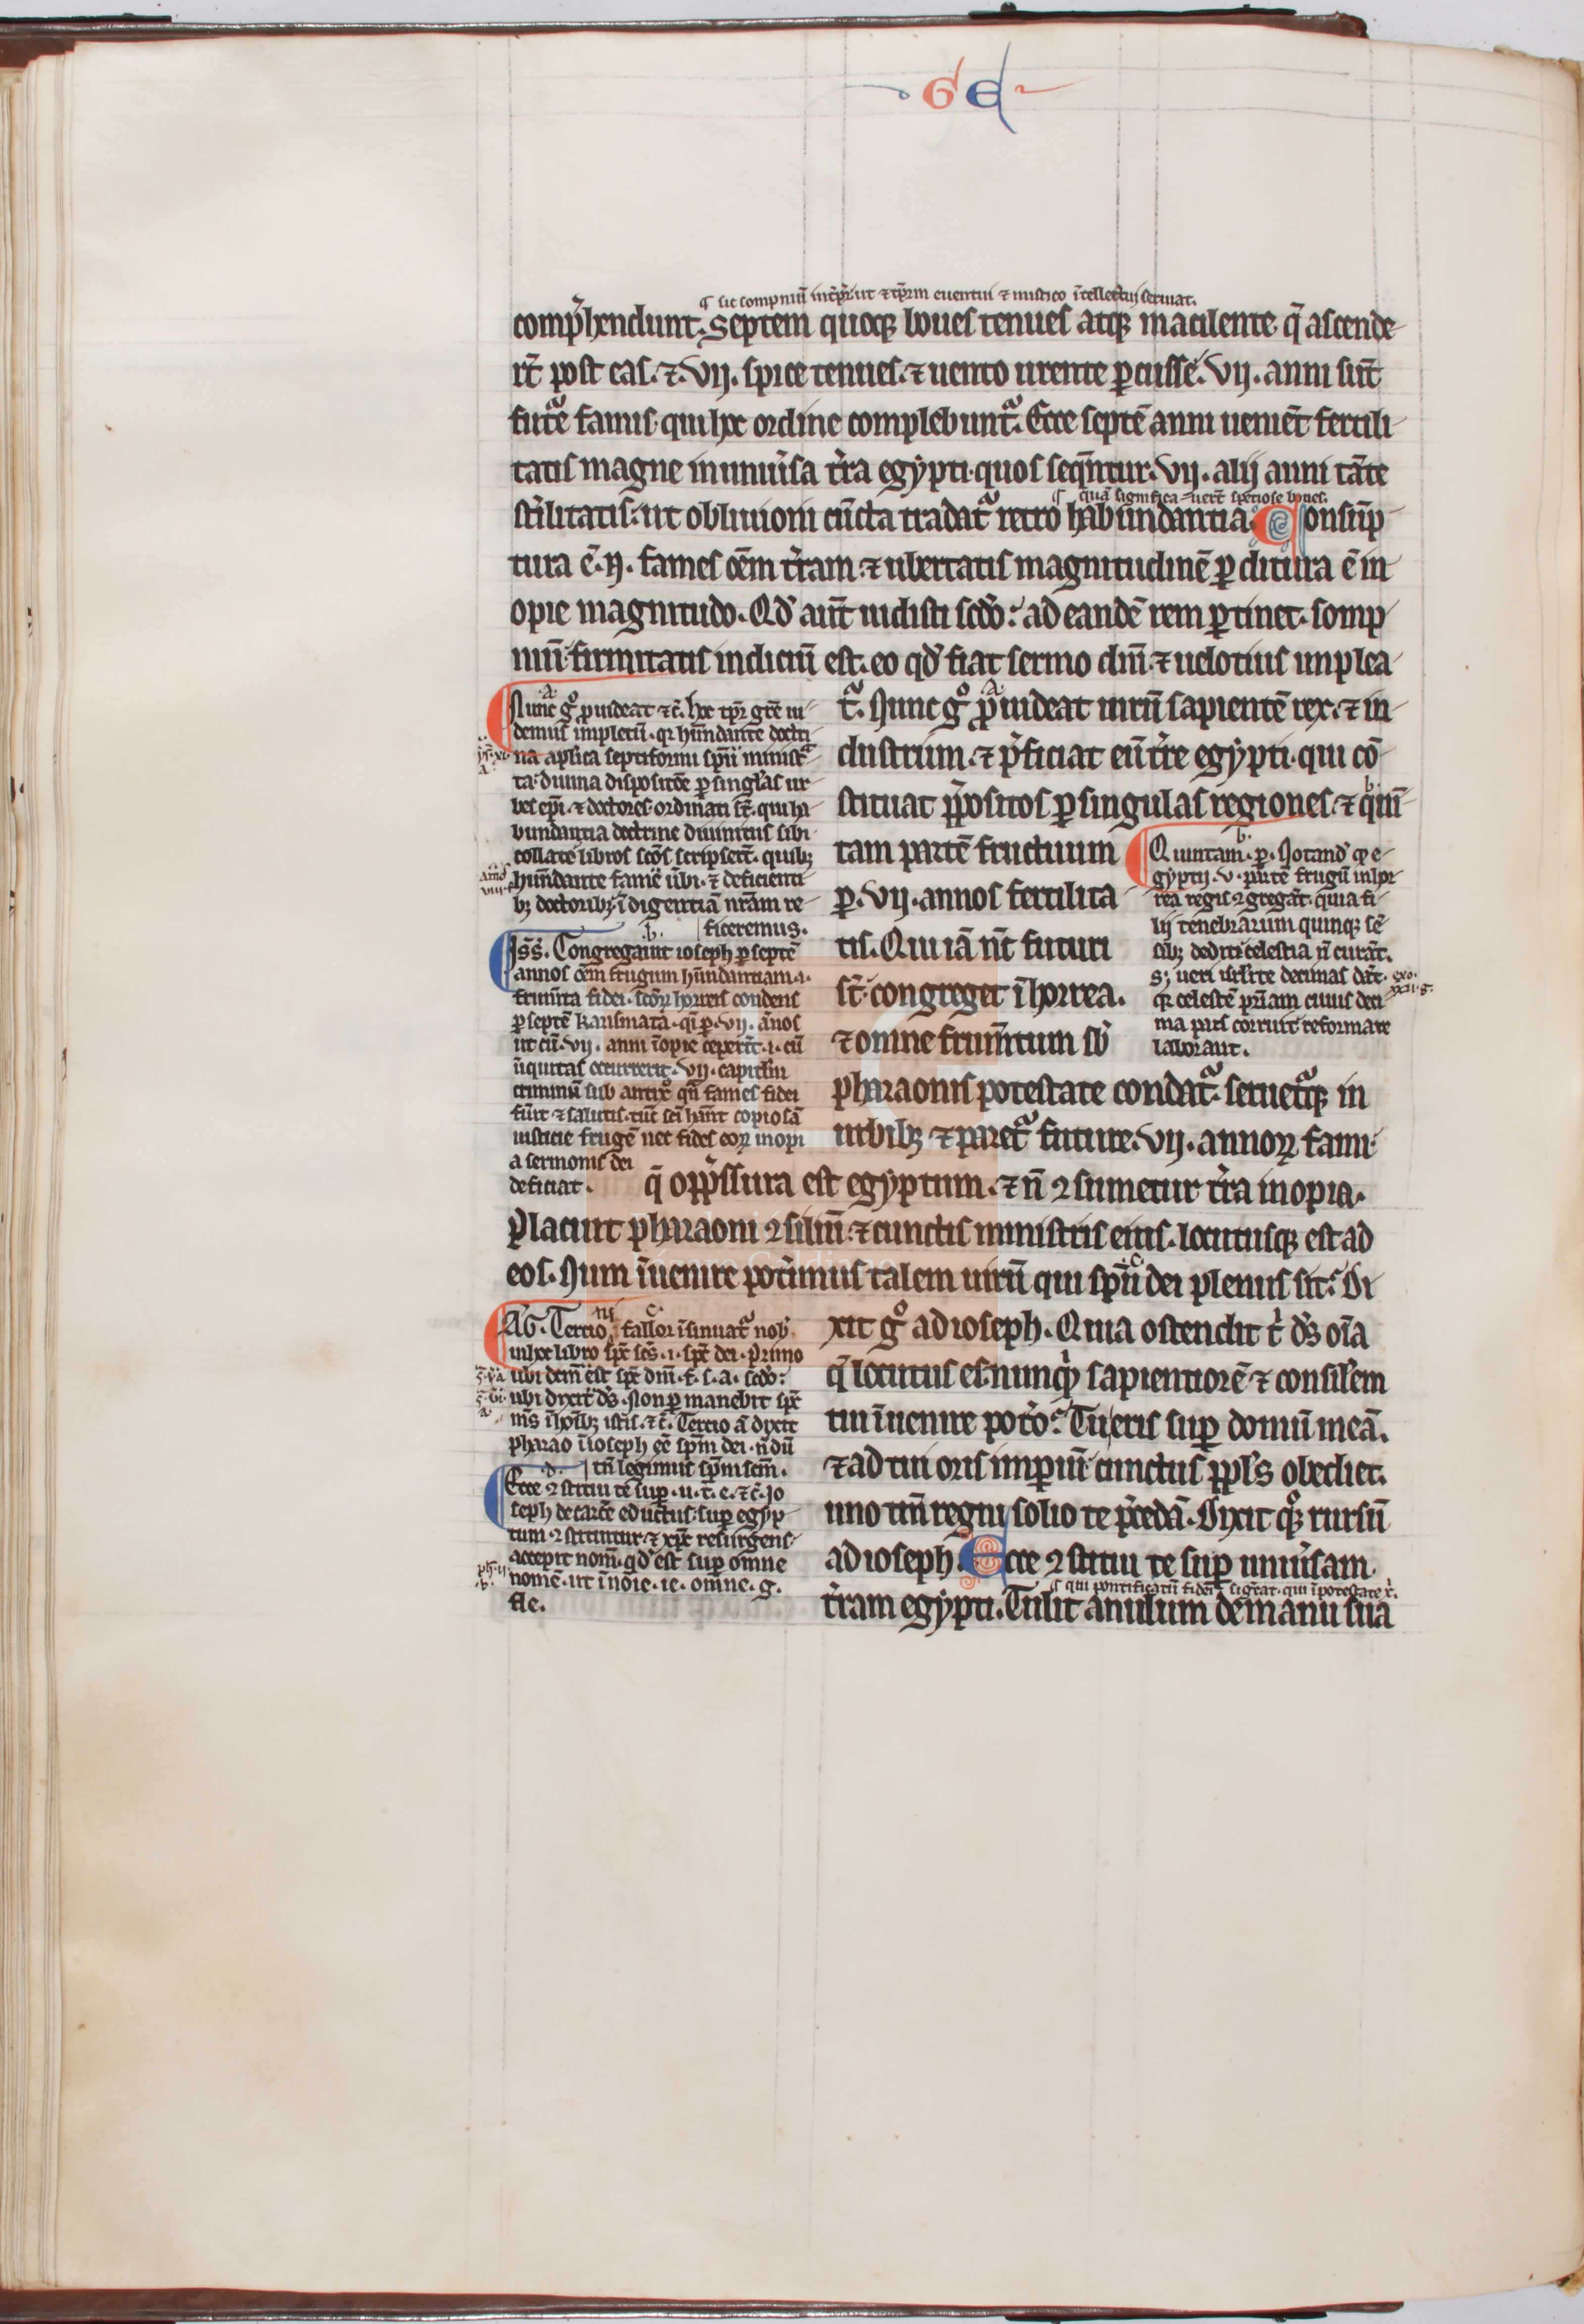 GE
sic sompniũ int̃p̃t̃ur ut ⁊ tp̃rm euentui ⁊ mistico ĩtellectui seruiat.
comp̃hendunt. Septem quoqꝫ boues tenues atqꝫ macilente q̃ ascende
rt̃ post eas. ⁊ .vij. spice tenues. ⁊ uento urente ꝑcusse. vij. anni sũt
futͣe famis. qui hoc ordine complebuntͣ. Ecce septẽ anni ueniẽt fertili
tatis magne in uniũsa tr̃a egypti. quos seqñtur. vij. alij anni tãte
st̾ilitatis. ut obliuioni cũcta tradatͣ retro habundantia. Consũp
quã significa uert̃ speciose boues.
tura ẽ. n̄. fames oẽm tr̃am. ⁊ ubertatis magnitudinẽ ꝑditura ẽ in
opie magnitudo. Qđ aut̃ uidisti scđo: ad eandẽ rem ꝑtinet. somp
niũ firmitatis indiciũ est. eo qđ fiat sermo dñi ⁊ uelotius implea
tͣ. Nunc gͦ ꝓuideat uirũ sapientẽ rex. ⁊ in
dustrum. ⁊ p̃ficiat eũ tr̃e egypti. qui cõ
stituat p̃positos ꝑ singulas regiones. ⁊ quĩ
tam partẽ fructuum
ꝑ .vij. annos fertilita
tis. Qui iã nũc futuri
st̃. congreget ĩ horrea.
⁊ omne frum̃tum sb̾
pharaonis potestate condatͣ. seruetͣqꝫ in
urbibꝫ ⁊ p̃aretͣ future. vij. annoꝝ fami.
q̃ opp̃ssura est egyptum. ⁊ ñ ꝯsumetur tr̃a inopia.
Placuit pharaoni ꝯsiliũ. ⁊ cunctis ministris eius. locutusqꝫ est ad
eos. Num ĩuenire pot̾imus talem uirũ qui sp̃u dei plenus sit? Di
xit gͦ ad ioseph. Quia ostendit t̾ ds̃ oĩa
q̃ locutus es. nunqͥd sapientiorẽ ⁊ consilẽm
tui ĩuenire pot̾o? Tu eris sup domũ meã.
⁊ ad tui oris imꝑiũ cunctus ppl̃s obediet.
uno tm̃ regni solio te p̃cedã. Dixit qͦꝫ rursũ
ad ioseph. Ecce ꝯstitui te sup uniũsam
qui pontificatũ fidei sigc̃at. qui ĩ potestate x̃.
tr̃am egypti. Tulit anulum de manu sua
a
Nunc gͦ ꝓuideat ⁊c̃. hoc tp̃r gr̃e ui
demus impletũ. qr hũndante doctri
na aplica septiformi sp̃u ministͣ
ta. diuina dispositõe ꝑ singl̃as ur
bes ep̃i ⁊ doctores ordinati st̃. qui ha
bundantia doctrine diuinitus sibi
collate libros sc̃os scripsert̃. quibꝫ
hũndante fame ũbi. ⁊ deficienti
bꝫ doctoribꝫ ĩdigentiã nr̃am re
ficeremus.
b.
Iss̃. Congregauit ioseph ꝑ septẽ
annos oẽm frugum hũndantiam. i.
frum̃ta fidei. sc̃oꝝ horreis condens
ꝑ septẽ karismata. qͣi ꝑ .vij. ãnos
ut cũ .vij. anni ĩopie ceperit̃. i. cũ
iniquitas occurrerit. vij. capitl̃m
criminũ sub antix̃o qñ fames fidei
fũit ⁊ salutis. tũc sc̃i hãnt copiosã
iusticie frugẽ nec fides eoꝝ inopi
a sermonis dei
deficiat.
b.
Quintam. p. Notand̾ qꝫ e
gyptij .v. partẽ frugũ in hor
rea regis ꝯgregãt. quia fi
lij tenebrarum quinqꝫ sẽ
sibꝫ dediti celestia ñ curãt.
Sꝫ ueri isrl̃ite decimas dãt. exo. xxii. g.
qr celestẽ pr̃iam cuius deci
ma pars corruit reformare
laborant.
c.
AG̃. Tertio ni fallor ĩsinuatͣ nob̾
in hoc libro sp̃c sc̃s. i. sp̃c dei. Primo
ubi dc̃m est sp̃c dñi. f. s. a. scđo:
ubi dixit ds̃. Non ꝑmanebit sp̃c
m̃s ĩ hoĩbꝫ istis. ⁊c̃. Tertio ã dixit
pharao ĩ ioseph ee sp̃m dei. ñ dũ
tñ legimus sp̃m scm̃.
d.
Ecce ꝯstitui te sup. u. t̃. e. ⁊c̃. Io
seph de carc̾e eductus. sup egyp
tum ꝯstituitur. ⁊ xp̃c resurgens
accepit nom̃. qđ est sup omne
nomẽ. ut ĩ noĩe. ie. omne. g.
fle.